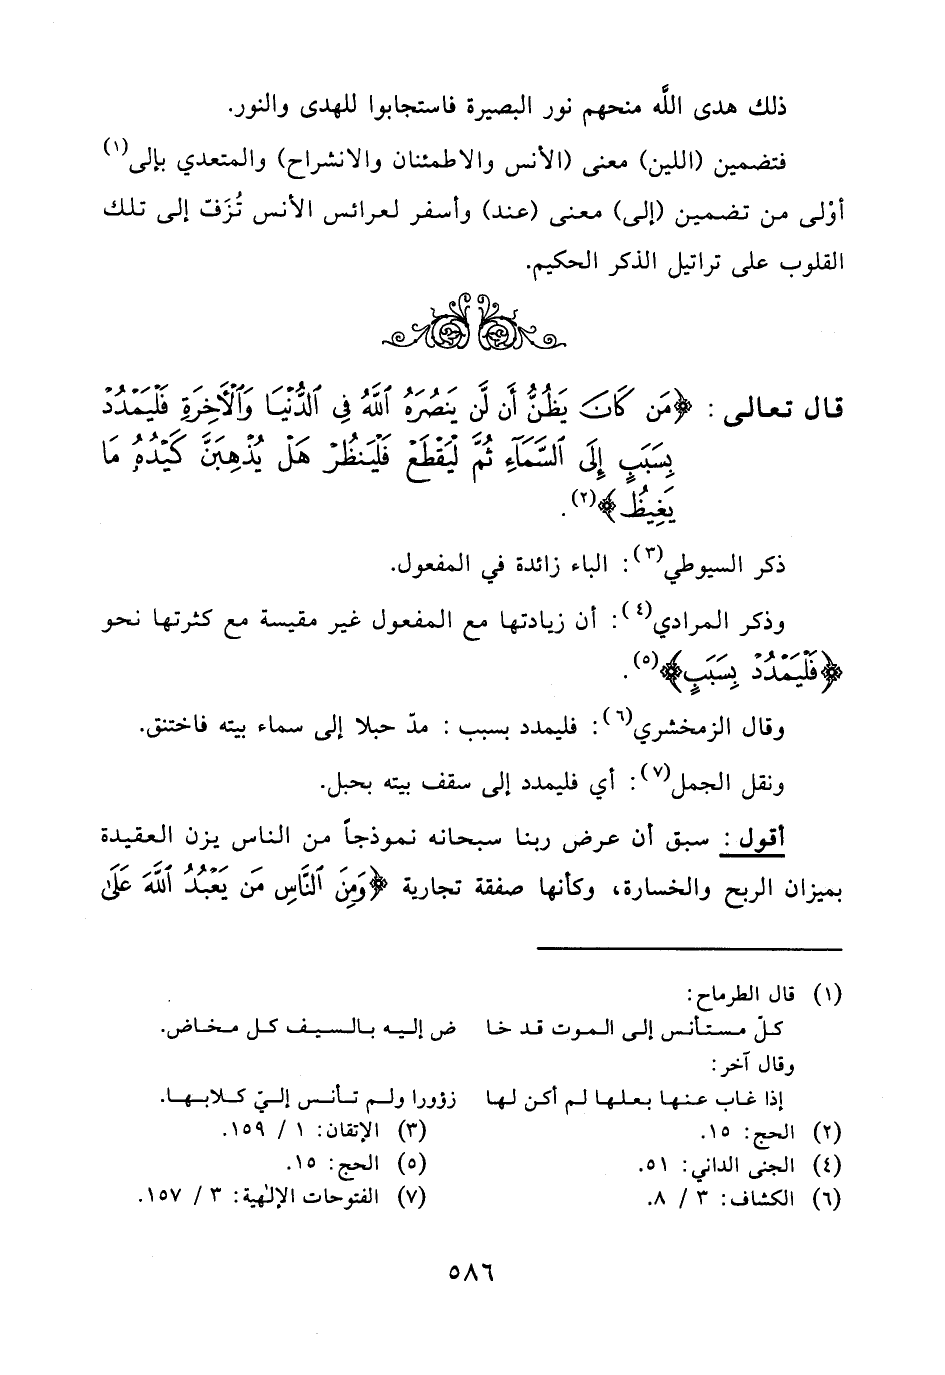 ذلك هدى اللَّه منحهم نور البصيرة فاستجابوا للهدى والنور.
فتضمين (اللين) معنى (الأنس والاطمئنان والانشراح) والمتعدي بإلى(١)
أوْلى من تضمين (إلى) معنى (عند) وأسفر لعرائس الأنس تُزَفّ إلى تلك
القلوب على تراتيل الذكر الحكيم.
قال تعالى : ﴿مَن كَانَ يَظُنُّ أَن لَّن يَنصُرَهُ ٱللَّهُ فِى ٱلدُّنْيَا وَٱلْأَخِرَةِ فَلْيَمْدُدْ
بِسَبَبٍ إِلَى ٱلسَّمَآءِ ثُمَّ لْيَقْطَعْ فَلْيَنظُرْ هَلْ يُذْهِبَنَّ كَيْدُهُۥ مَا
يَغِيظُ﴾(٢).
ذكر السيوطي(٣): الباء زائدة في المفعول.
وذكر المرادي(٤): أن زيادتها مع المفعول غير مقيسة مع كثرتها نحو
﴿فَلْيَمْدُدْ بِسَبَبٍ﴾(٥).
وقال الزمخشري(٦): فليمدد بسبب : مدّ حبلا إلى سماء بيته فاختنق.
ونقل الجمل(٧): أي فليمدد إلى سقف بيته بحبل.
أقول : سبق أن عرض ربنا سبحانه نموذجاً من الناس يزن العقيدة
بميزان الربح والخسارة، وكأنها صفقة تجارية ﴿وَمِنَ ٱلنَّاسِ مَن يَعْبُدُ ٱللَّهَ عَلَىٰ
(١) قال الطرماح:
كلّ مستأنس إلى الموت قد خا ض إليه بالسيف كل مخاض.
وقال آخر:
إذا غاب عنها بعلها لم أكن لها زؤورا ولم تأنس إليّ كلابها.
(٢) الحج: ١٥. (٣) الإتقان: ١ / ١٥٩.
(٤) الجنى الداني: ٥١. (٥) الحج: ١٥.
(٦) الكشاف: ٣ / ٨. (٧) الفتوحات الإلٰهية: ٣ / ١٥٧.
٥٨٦